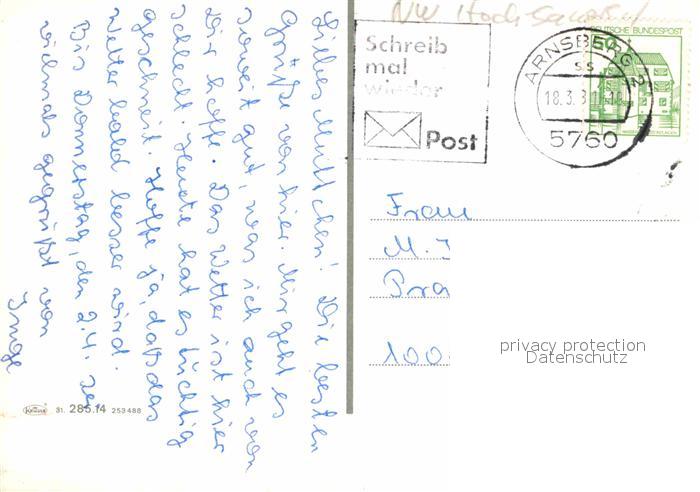 Liebes Muttchen! Die besten
Grüße von hier. Mir geht es
soweit gut, was ich auch von
Dir hoffe. Das Wetter ist hier
schlecht. Heute hat es tüchtig
geschneit. Hoffe ja, daß das
Wetter bald besser wird.
Bis Donnerstag, den 2.4. sei
vielmals gegrüßt von
Inge
Krüger 31. 285.14 253488
NW
Schreib
mal
wieder
Post
ARNSBERG 2
ss
18.3.8
5760
DEUTSCHE BUNDESPOST
50
Frau
M. J
Pra
100
privacy protection
Datenschutz